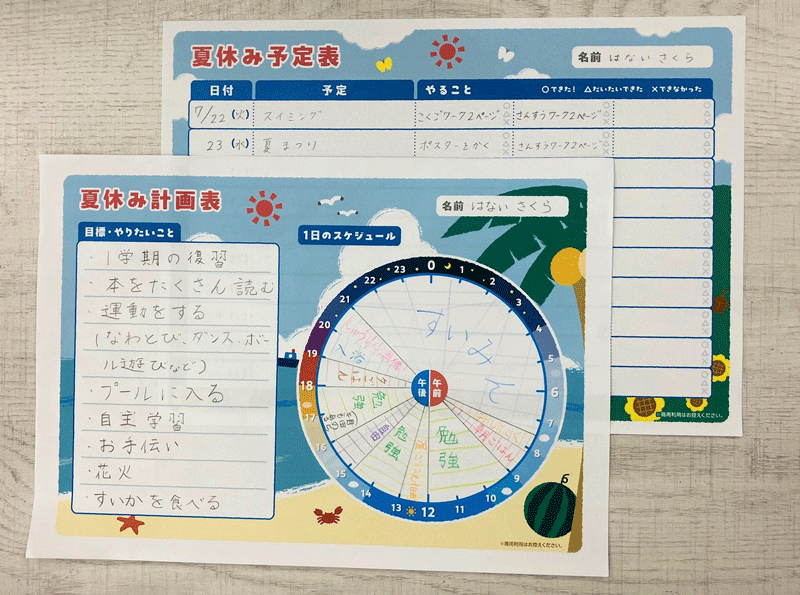 夏休み予定表
名前 はない さくら
日付 予定 やること ○できた! △だいたいできた ×できなかった
7/22 (火) スイミング こくごワーク2ページ ○△× さんすうワーク2ページ ○△× ○△×
23 (水) 夏まつり ポスターをかく ○△× さんすうワーク2ページ ○△× ○△×
※商用利用はお控えください。
夏休み計画表
名前 はない さくら
目標・やりたいこと
・1学期の復習
・本をたくさん読む
・運動をする
(なわとび、ダンス、ボー
ル遊びなど)
・プールに入る
・自主学習
・お手伝い
・花火
・すいかを食べる
1日のスケジュール
0 1 2 3 4 5 6 7 8 9 10 11 12 13 14 15 16 17 18 19 20 21 22 23
午後 午前
すいみん
朝ごはん
勉強
勉強
自由
勉強
夕ごはん
入浴
※商用利用はお控えください。